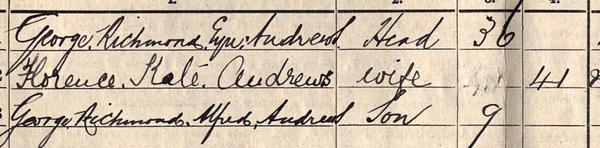 George Richmond Eyre Andrews Head 36
Florence Kate Andrews wife 41
George Richmond Alfred Andrews Son 9